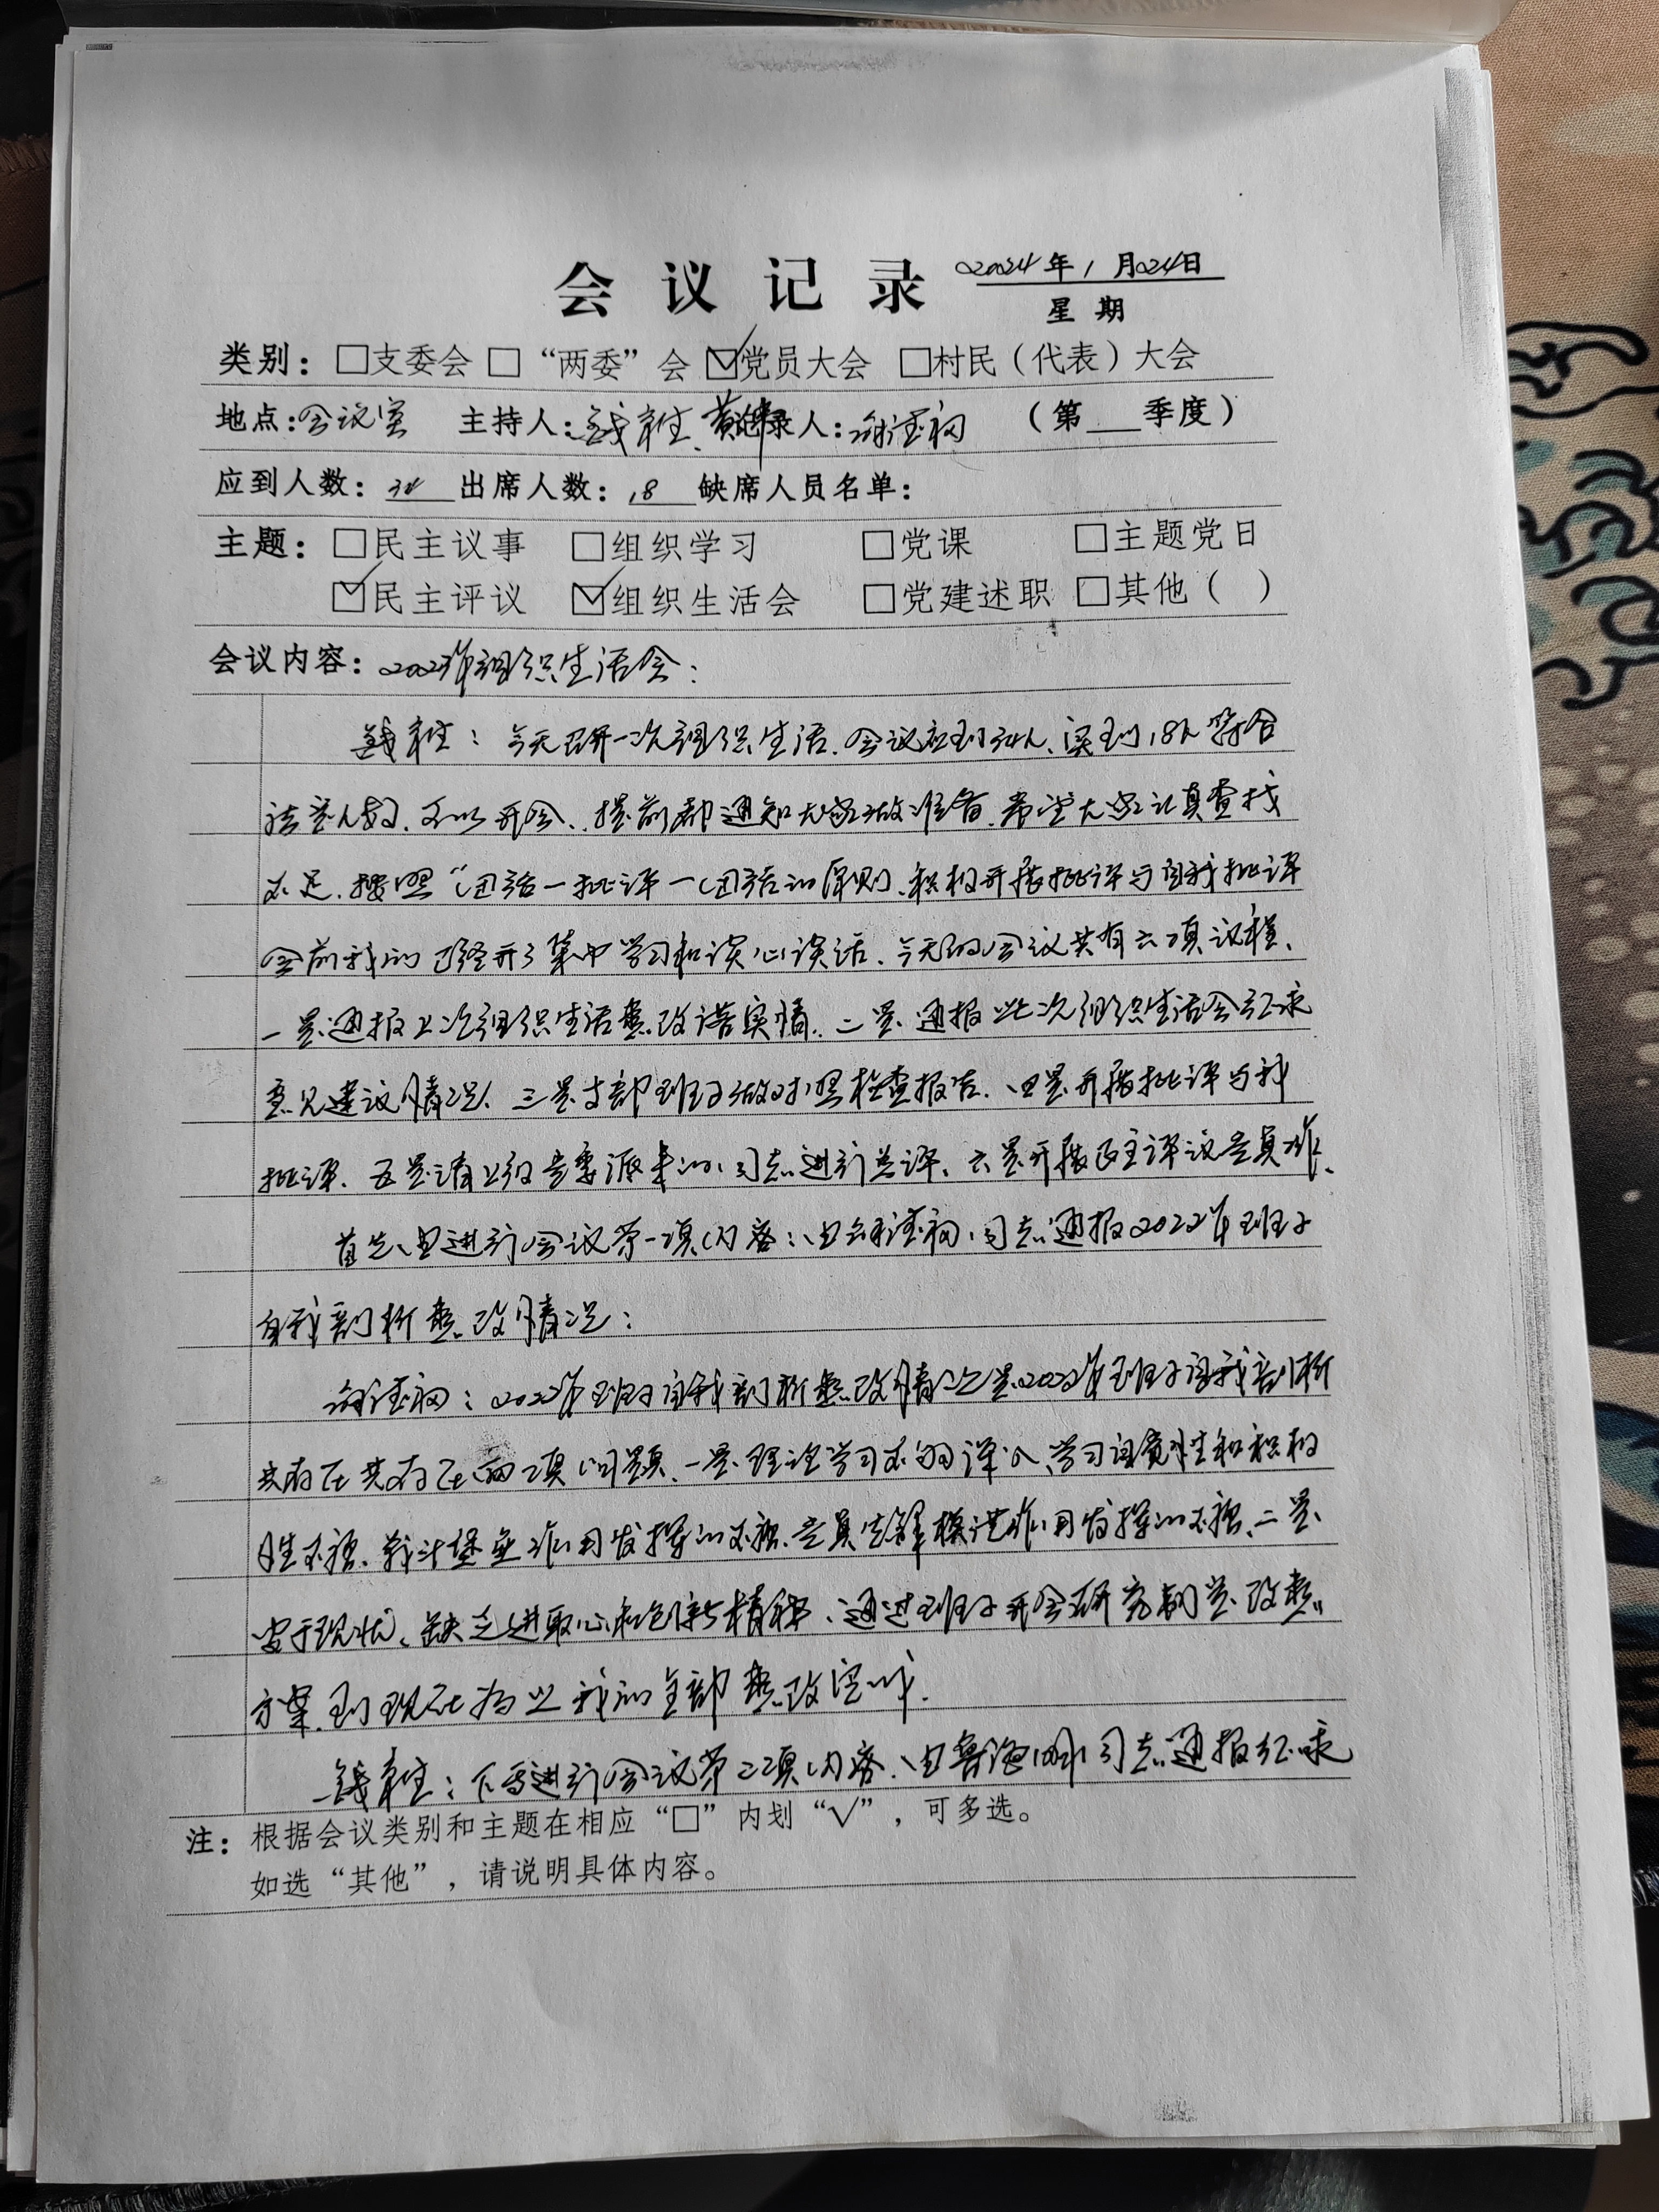 会议记录 2024年1月24日
星期
类别：□支委会 □“两委”会 ☑党员大会 □村民（代表）大会
地点：会议室 主持人：钱 记录人： （第___季度）
应到人数：34 出席人数：18 缺席人员名单：
主题：□民主议事 □组织学习 □党课 □主题党日
☑民主评议 ☑组织生活会 □党建述职 □其他（ ）
会议内容：2023年组织生活会：
钱：今天召开一次组织生活.会议应到34人、实到18人符合
法定人数.可以开会.提前都通知大家做准备.希望大家认真查找
不足.按照“团结一批评一团结的原则.积极开展批评与自我批评
会前我们已经开了集中学习和谈心谈话.今天的会议共有六项议程.
一是通报上次组织生活整改落实情.二是通报此次组织生活会征求
意见建议情况.三是支部班子做对照检查报告.四是开展批评与我
批评.五是请上级党委派来的同志进行总评.六是开展民主评议党员
首先由进行会议第一项内容：由同志通报2022年班子
自我剖析整改情况：
：2022年班子自我剖析整改情况是2022年班子自我剖析
共存在共存在两项问题.一是理论学习不够深入、学习自觉性和积极
性不强.战斗堡垒作用发挥的不强.党员先锋模范作用发挥的不强.二是
安于现状、缺乏进取心和创新精神.通过班子开会研究制定改整
方案.到现在为止我们全部整改完成.
钱：下面进行会议第二项内容.由同志通报征求
注：根据会议类别和主题在相应“□”内划“√”，可多选。
如选“其他”，请说明具体内容。